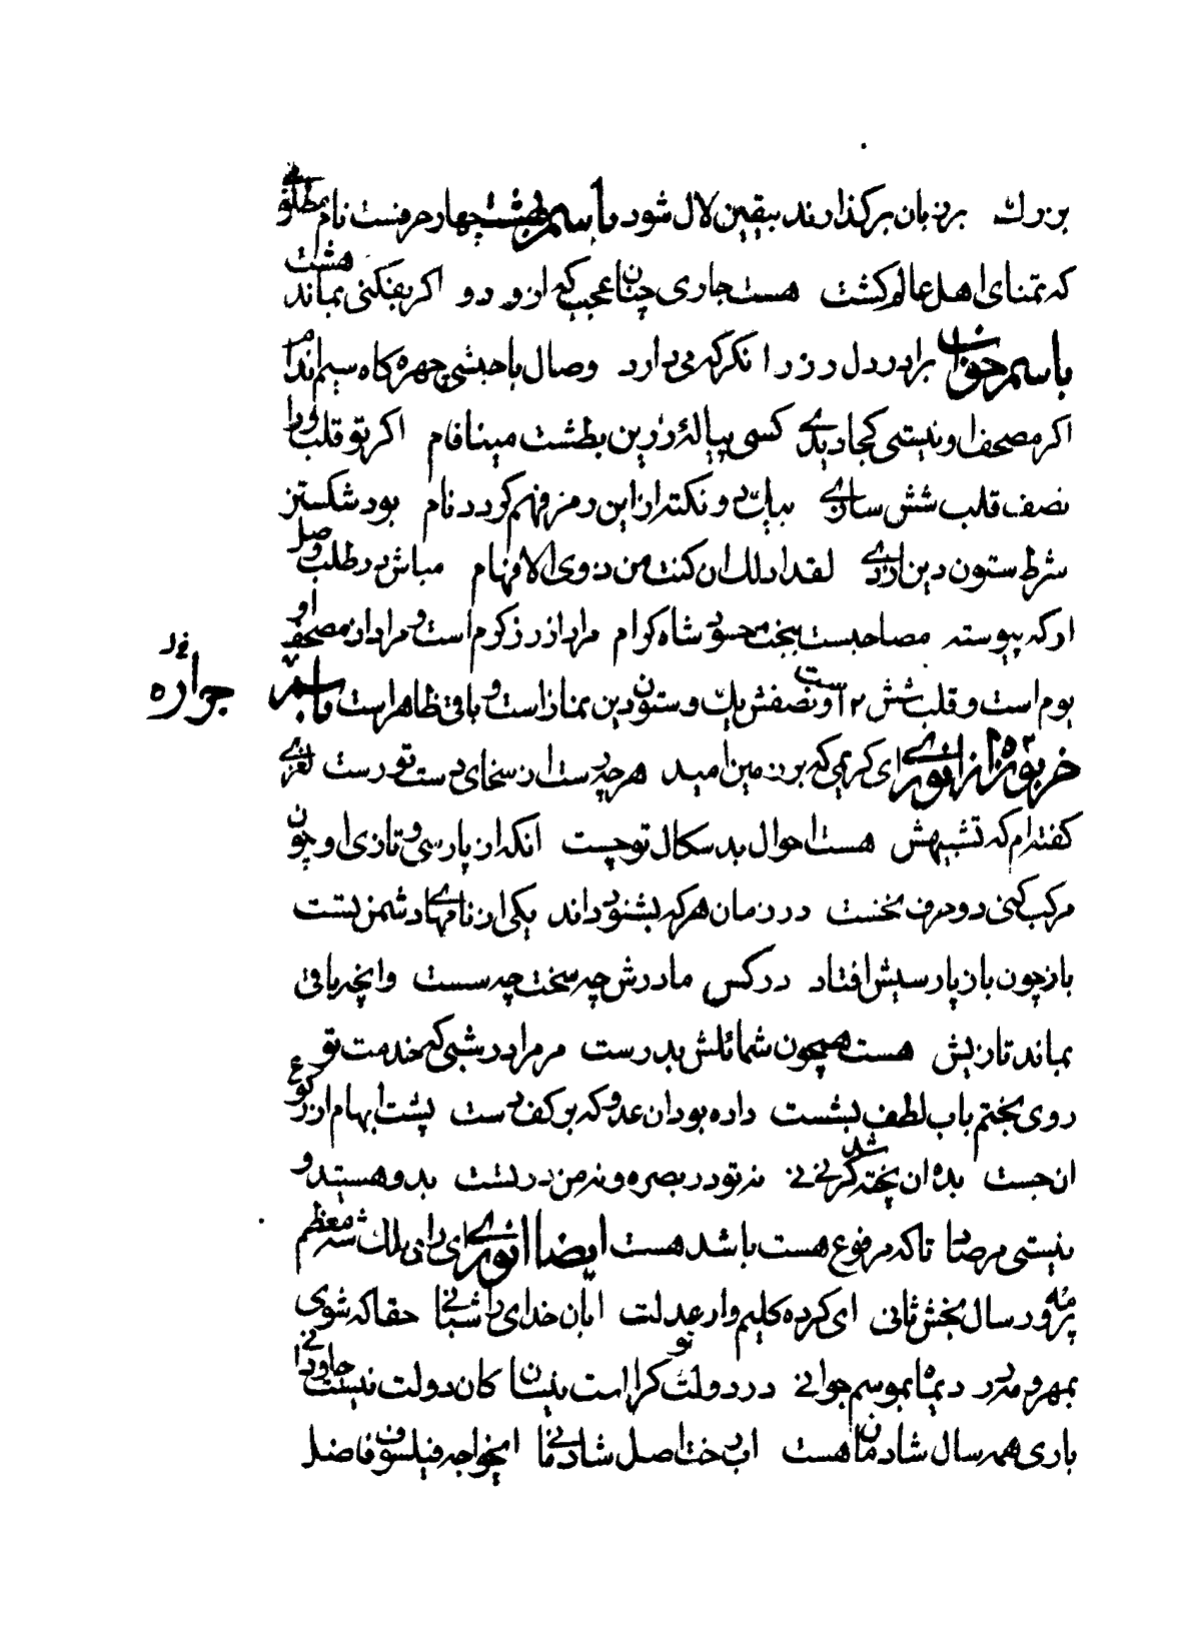 بزرك برزبان بركذارند بيقين لال شود باسم بهشت چهار حرفست نام مطلوبے
كه تمناى اهل عالم كشت هست جارى چنان عجب كه ازو دو اكر بفكنى بماند هشت
باسم خوان برابر دل رزرا نكر كه مى دارد وصال با حبشى چهره كاه سيم اندام
اكر مصحف او نيستى كجا ديدے كسى پياله زرين بطشت مينا فام اكر تو قلب ورا
نصف قلب شش سازى بيابى دو نكته ازاين رمز فهم كردد نام بود شكستن
شرط ستون دين ارى لقد ادلك ان كنت من ذوى الافهام مباش در طلب وصل
او كه پيوسته مصاحبست ببخت حسود شاه كرام مراد از رز كرم است و مراد از مصحف او
بوم است و قلب شش ۲ است و نصفش يك و ستون دين نماز است و باقى ظاهر است باسم
جوازه
خربوزه از انورى اى كريمى كه بر زمين اميد هر چه رست از سخاى دست تو رست لغزے
كفته ام كه تشبيهش هست احوال بدسكال تو چست انكه از پارسى و تازى او چون
مركب كنى دو حرف نخست در زمان هركه بشنود داند يكى از نامهاے دشمن تست
باز چون باز پارسيش افتاد در كس مادرش چه سخت چه سست وانچه باقى
بماند تازيش هست همچون شمائلش بدرست مر مرا در شبى كه خدمت تو
روى بختم باب لطف بشست داده بود ان عدو كه بر كف دست پشت ابهام از ركوع
ان جست بده ان پخته شد كرنے نے نه تو در بصره و نه من در تست بد و هستيد و
نيستى مرصاد تا كه مرفوع هست باشد هست ايضا انورے اى راى ملك شه معظم
پرورسال بخش ثانى اى كرده كليم وار عدلت ابان خداى را شبانى حقا كه شوى
بمهر و مه بر ديماه بموسم جوانے در دولت تو كرا است نيسان كان دولت نيست جاودانے
بارى همه سال شادمان هست اب دخت اصل شادمانے ايخواجه فيلسوف فاضل